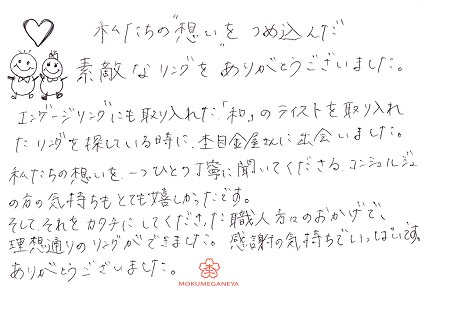 私たちの"想い"を つめ込んだ
素敵なリングを ありがとうございました。
エンゲージリングにも取り入れた「和」のテイストを取り入れ
たリングを探している時に、杢目金屋さんに出会いました。
私たちの想いを、一つひとつ丁寧に聞いてくださる、コンシェルジュ
の方の気持ちもとても嬉しかったです。
そして、それをカタチにしてくださった職人方々のおかげで、
理想通りのリングができました。 感謝の気持ちでいっぱいです。
ありがとうございました。
MOKUMEGANEYA